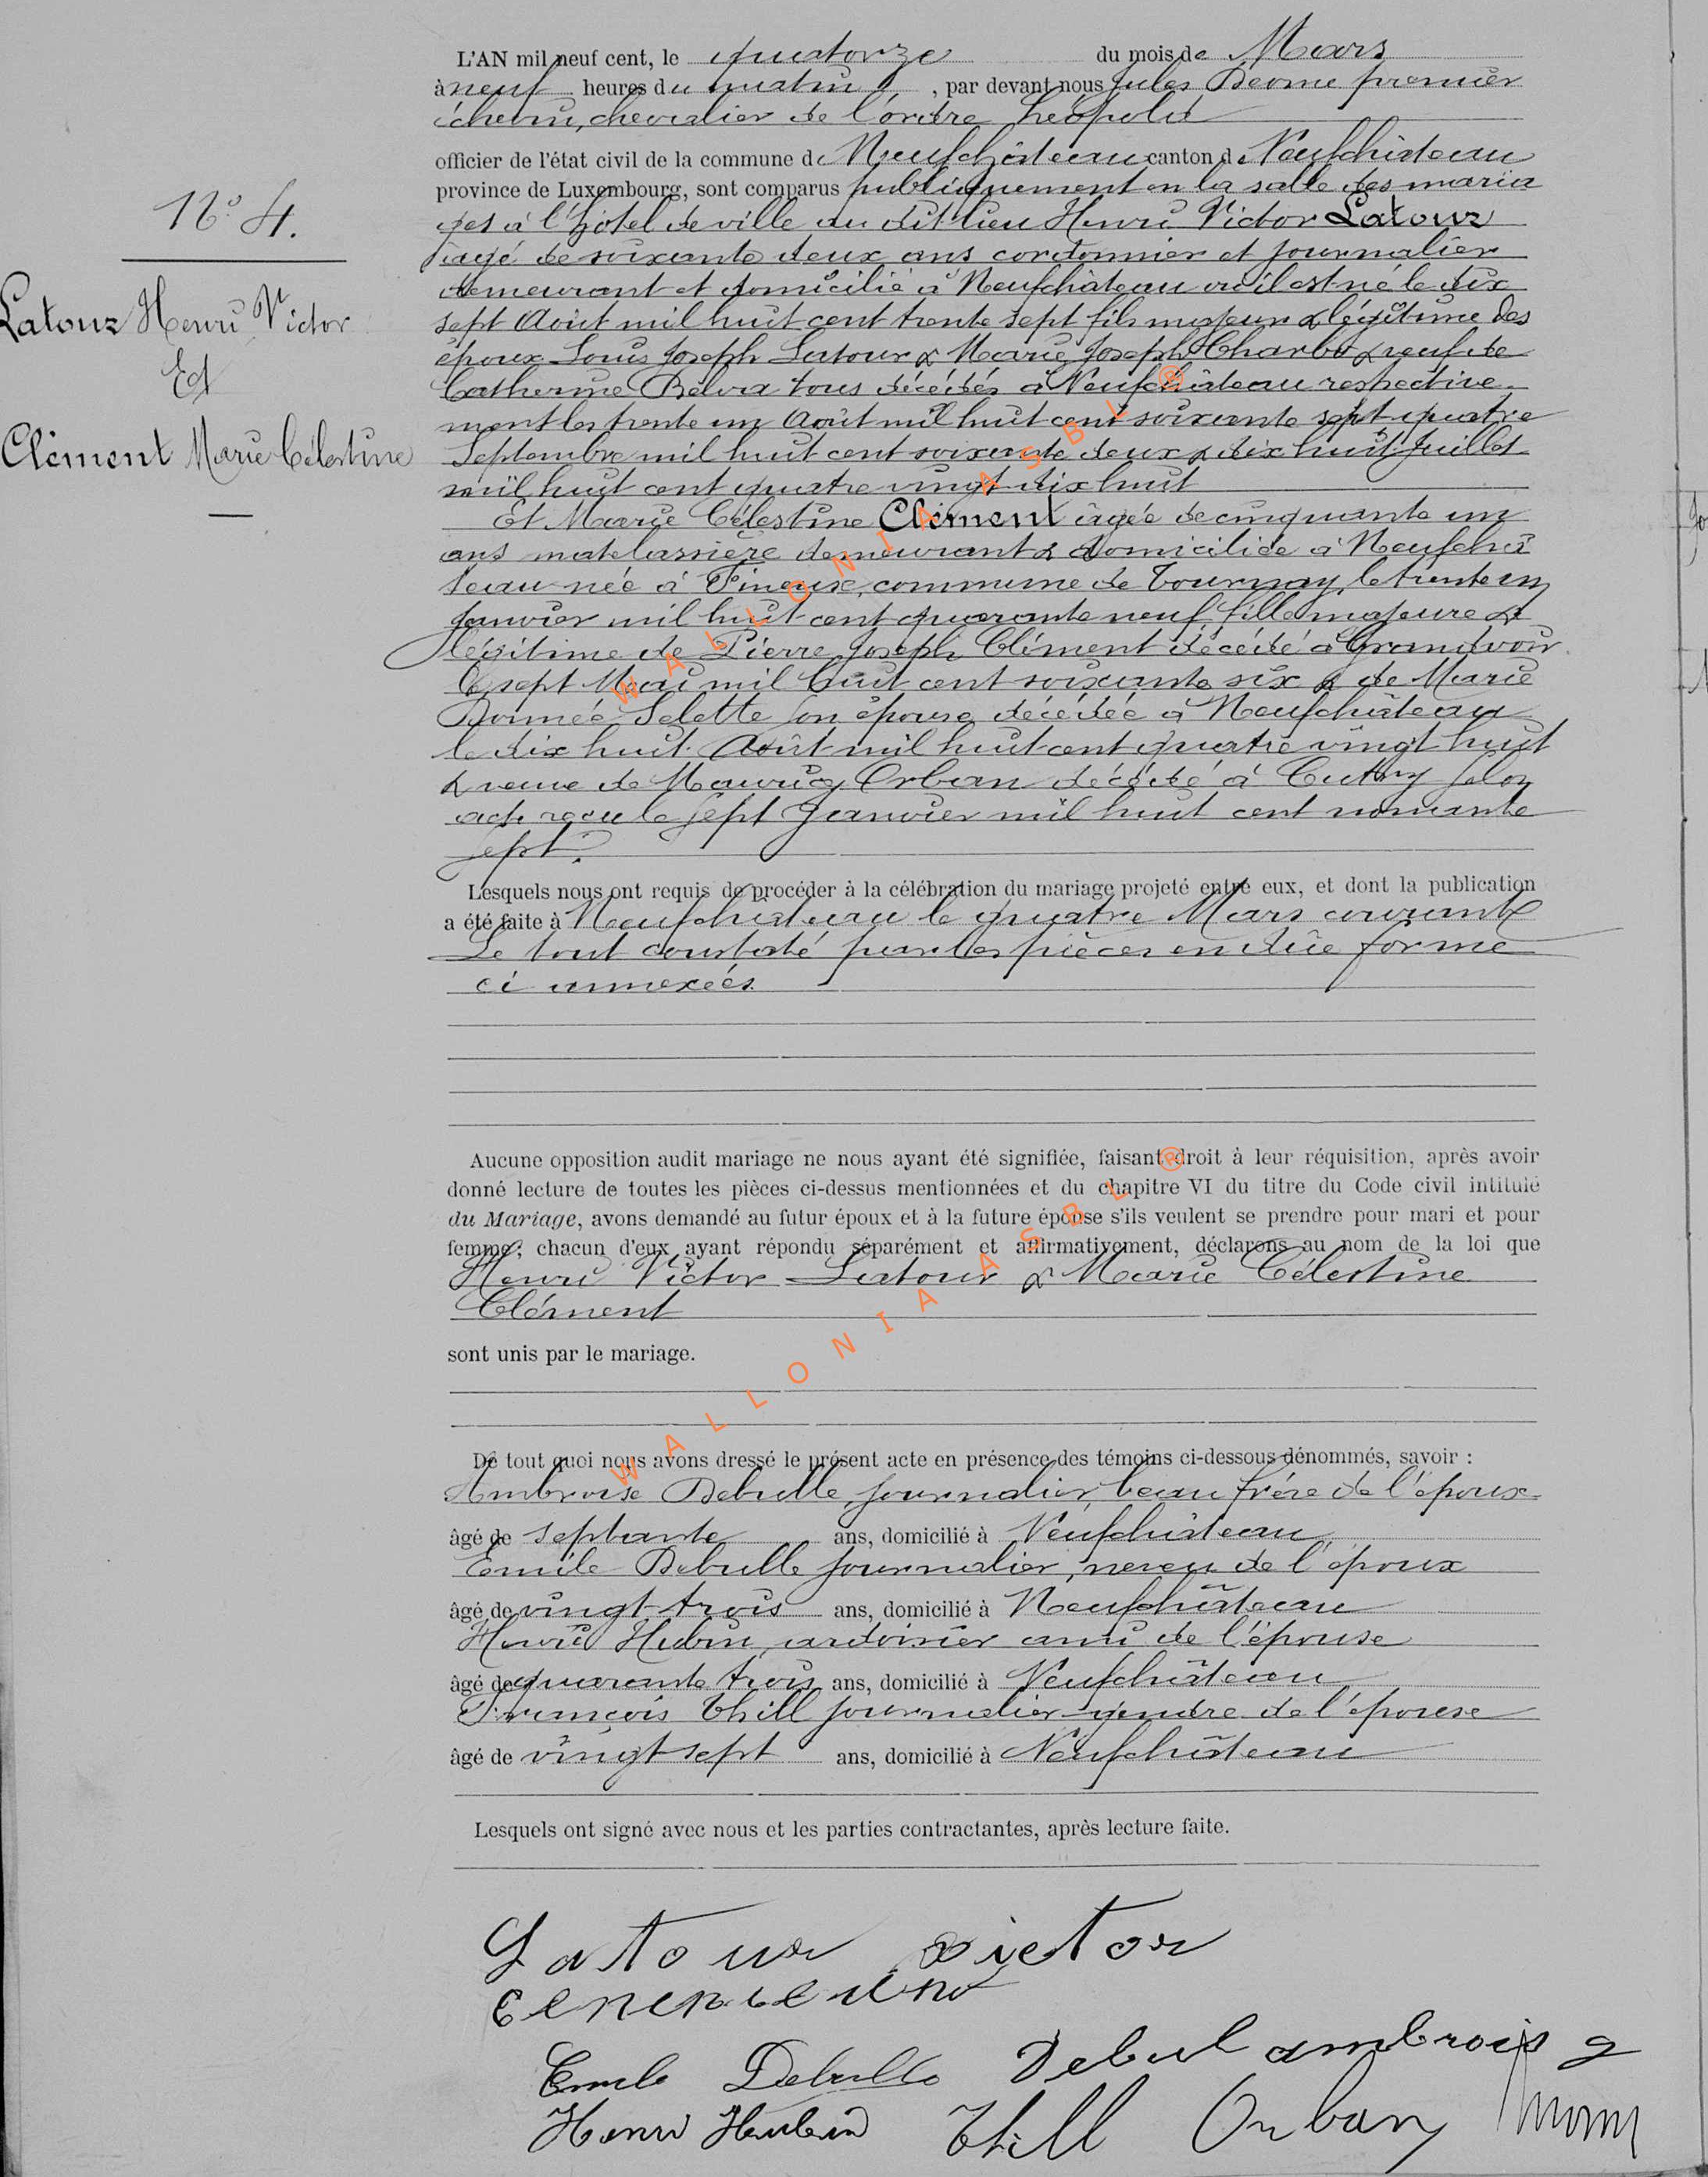 L'AN mil neuf cent, le quatorze du mois de Mars
à neuf heures du matin, par devant nous Jules premier
échevin, chevalier de l'ordre Léopold
officier de l'état civil de la commune de Neufchâteau canton de Neufchâteau
province de Luxembourg, sont comparus publiquement en la salle des maria
ges à l'hôtel de ville au dit lieu Henri Victor Latour
âgé de soixante deux ans cordonnier et journalier
demeurant et domicilié à Neufchâteau où il est né le dix
sept Août mil huit cent trente sept fils majeur & légitime des
époux Louis Joseph Latour & Marie Joseph & veuf de
Catherine tous décédés à Neufchâteau respective-
ment les trente un Août mil huit cent soixante sept, quatre
Septembre mil huit cent soixante deux & dix huit Juillet
mil huit cent quatre vingt dix huit
Et Marie Célestine Clément âgée de cinquante un
ans matelassière demeurant & domiciliée à Neufchâ
teau née à Tineux, commune de Tournay, le trente un
Janvier mil huit cent quarante neuf, fille majeure &
légitime de Pierre Joseph Clément décédé à Grandvoir
le sept Mai mil huit cent soixante six & de Marie
Selette son épouse décédée à Neufchâteau
le dix huit Août mil huit cent quatre vingt huit
& veuve de Maurice Orban décédé à Cutry selon
acte reçu le sept Janvier mil huit cent nonante
sept.
Lesquels nous ont requis de procéder à la célébration du mariage projeté entre eux, et dont la publication
a été faite à Neufchâteau le quatre Mars courant
Le tout constaté par les pièces en dûe forme
ci annexées
Aucune opposition audit mariage ne nous ayant été signifiée, faisant droit à leur réquisition, après avoir
donné lecture de toutes les pièces ci-dessus mentionnées et du chapitre VI du titre du Code civil intitulé
du Mariage, avons demandé au futur époux et à la future épouse s'ils veulent se prendre pour mari et pour
femme; chacun d'eux ayant répondu séparément et affirmativement, déclarons au nom de la loi que
Henri Victor Latour & Marie Célestine
Clément
sont unis par le mariage.
De tout quoi nous avons dressé le présent acte en présence des témoins ci-dessous dénommés, savoir :
Ambroise Debulle journalier, beau frère de l'époux
âgé de septante ans, domicilié à Neufchâteau
Emile Debulle journalier, neveu de l'époux
âgé de vingt trois ans, domicilié à Neufchâteau
Henri Hubin, ardoisier ami de l'épouse
âgé de quarante trois ans, domicilié à Neufchâteau
François Thill journalier gendre de l'épouse
âgé de vingt sept ans, domicilié à Neufchâteau
Lesquels ont signé avec nous et les parties contractantes, après lecture faite.
Latour victor
Emile Debulle Debul ambrois
Henri Hubin Thill Orban
N° 4.
Latour Henri Victor
Et
Clément Marie Célestine
WALLONIA ASBL ®
WALLONIA ASBL ®